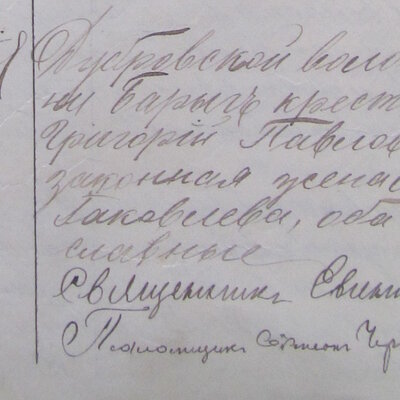 Дубровской воло
ни Барычъ крест
Григорій Павлов
законная жена
Яковлева, оба
славные
Священникъ Евги
Псаломщикъ Чер